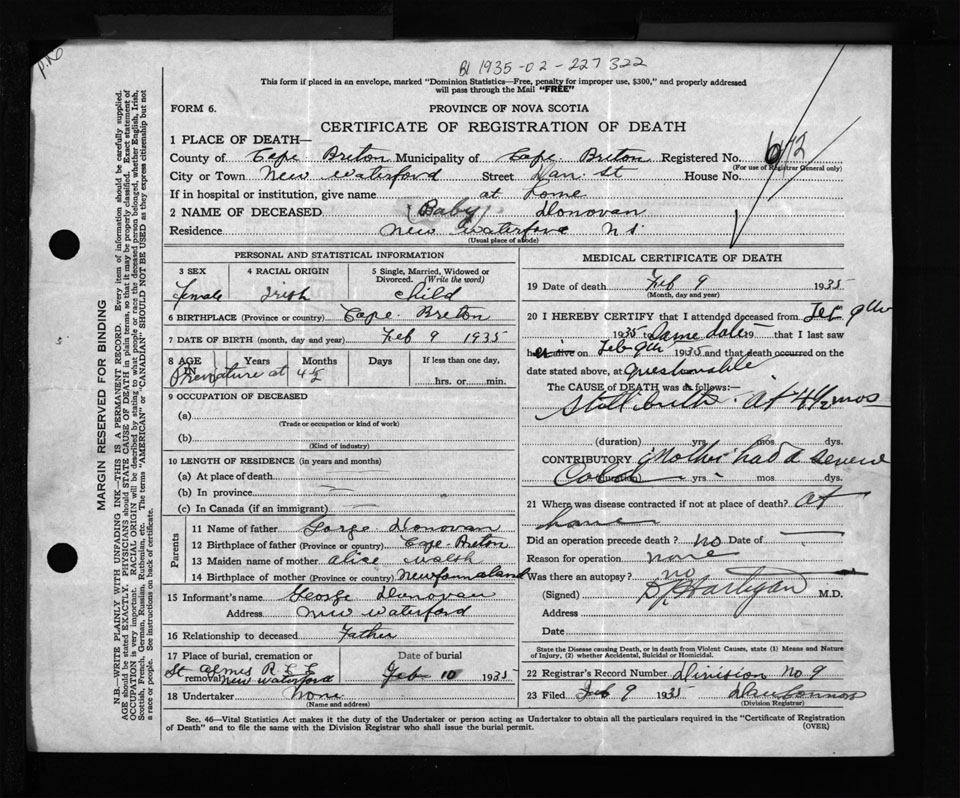 B1 1935-02-227322
This form if placed in an envelope, marked "Dominion Statistics—Free, penalty for improper use, $300," and properly addressed
will pass through the Mail "FREE"
FORM 6.
PROVINCE OF NOVA SCOTIA
CERTIFICATE OF REGISTRATION OF DEATH
1 PLACE OF DEATH—
County of Cape Breton Municipality of Cape Breton Registered No. 672
(For use of Registrar General only)
City or Town New Waterford Street House No.
If in hospital or institution, give name at home
2 NAME OF DECEASED (Baby) Donovan
Residence New Waterford N S
(Usual place of abode)
PERSONAL AND STATISTICAL INFORMATION
3 SEX 4 RACIAL ORIGIN 5 Single, Married, Widowed or Divorced. (Write the word)
Female Irish Child
6 BIRTHPLACE (Province or country) Cape Breton
7 DATE OF BIRTH (month, day and year) Feb 9 1935
8 AGE IN Years Months Days If less than one day,
hrs. or min.
Premature at 4½
9 OCCUPATION OF DECEASED
(a)
(Trade or occupation or kind of work)
(b)
(Kind of industry)
10 LENGTH OF RESIDENCE (in years and months)
(a) At place of death
(b) In province
(c) In Canada (if an immigrant)
Parents
11 Name of father George Donovan
12 Birthplace of father (Province or country) Cape Breton
13 Maiden name of mother Alice Walsh
14 Birthplace of mother (Province or country) Newfoundland
15 Informant's name George Donovan
Address New Waterford
16 Relationship to deceased Father
17 Place of burial, cremation or removal Date of burial
St Agnes R
New Waterford Feb 10 1935
18 Undertaker None
(Name and address)
MEDICAL CERTIFICATE OF DEATH
19 Date of death Feb 9 1935
(Month, day and year)
20 I HEREBY CERTIFY that I attended deceased from Feb 9th
1935 to Same date 19 that I last saw
h er alive on Feb 9th 1935 and that death occurred on the
date stated above, at questionable
The CAUSE OF DEATH was as follows:
Stillbirth. At 4½ mos
(duration) yrs. mos. dys.
CONTRIBUTORY Mother had a severe
Cold (duration) yrs. mos. dys.
21 Where was disease contracted if not at place of death? At
home
Did an operation precede death? no Date of
Reason for operation none
Was there an autopsy? no
(Signed) Hartigan M.D.
Address
Date
State the Disease causing Death, or in death from Violent Causes, state (1) Means and Nature of Injury, (2) whether Accidental, Suicidal or Homicidal.
22 Registrar's Record Number Division No 9
23 Filed Feb 9 1935
(Division Registrar)
Sec. 46—Vital Statistics Act makes it the duty of the Undertaker or person acting as Undertaker to obtain all the particulars required in the "Certificate of Registration
of Death" and to file the same with the Division Registrar who shall issue the burial permit.
(OVER)
MARGIN RESERVED FOR BINDING
N.B.—WRITE PLAINLY WITH UNFADING INK—THIS IS A PERMANENT RECORD. Every item of information should be carefully supplied.
AGE should be stated EXACTLY. PHYSICIANS should STATE CAUSE OF DEATH in plain terms, so that it may be properly classified. Exact statement of
OCCUPATION is very important. RACIAL ORIGIN will be described by stating to what people or race the deceased person belonged, whether English, Irish,
Scottish, French, German, Russian, Ruthenian, etc. The terms "AMERICAN" or "CANADIAN" SHOULD NOT BE USED as they express citizenship but not
a race or people. See instructions on back of certificate.